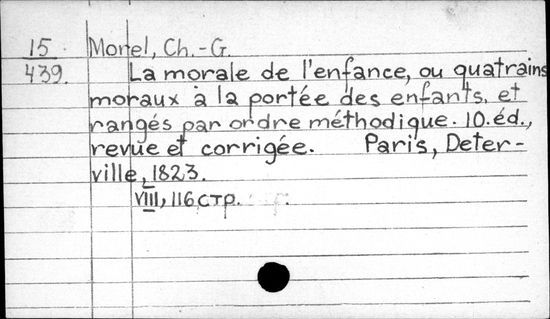 15 Morel, Ch.-G.
439. La morale de l'enfance, ou quatrains
moraux à la portée des enfants, et
rangés par ordre méthodique. 10.éd.,
revue et corrigée. Paris, Deter-
ville, 1823.
VIII, 116 стр.